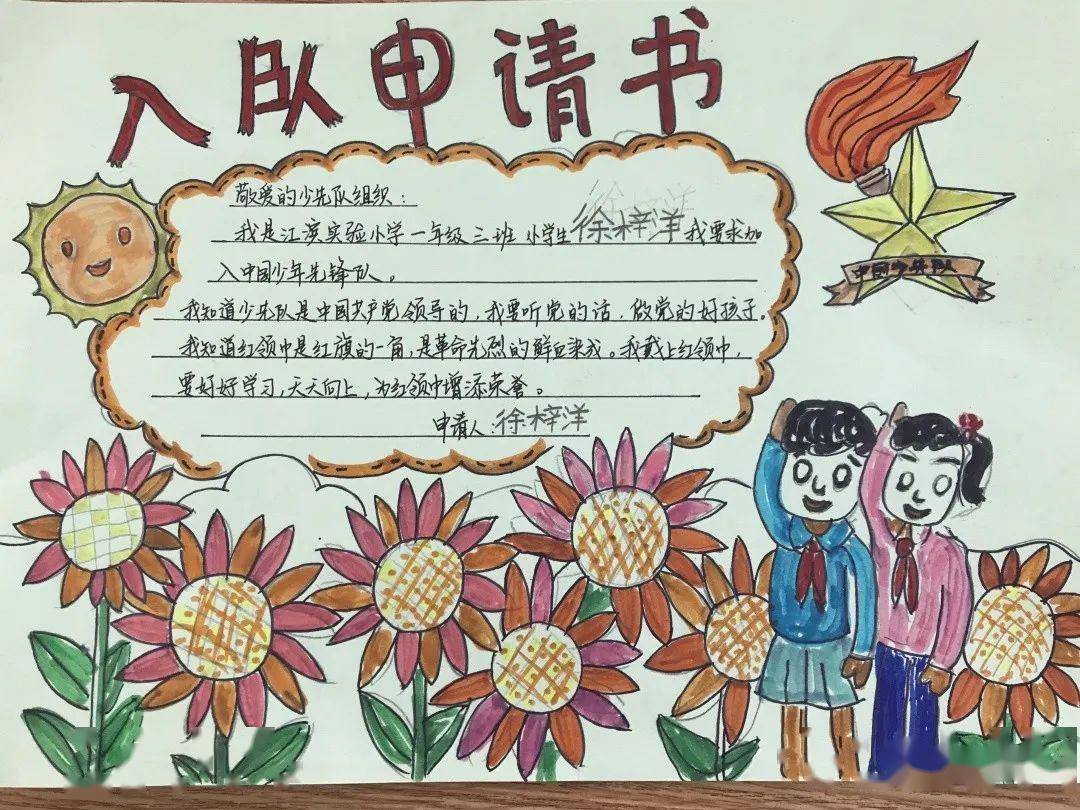 入队申请书
敬爱的少先队组织:
我是江汉实验小学一年级三班 小学生徐梓洋我要求加
入中国少年先锋队。
我知道少先队是中国共产党领导的,我要听党的话,做党的好孩子。
我知道红领巾是红旗的一角,是革命先烈的鲜血染成。我戴上红领巾,
要好好学习,天天向上,为红领巾增添荣誉。
申请人:徐梓洋
中国少先队